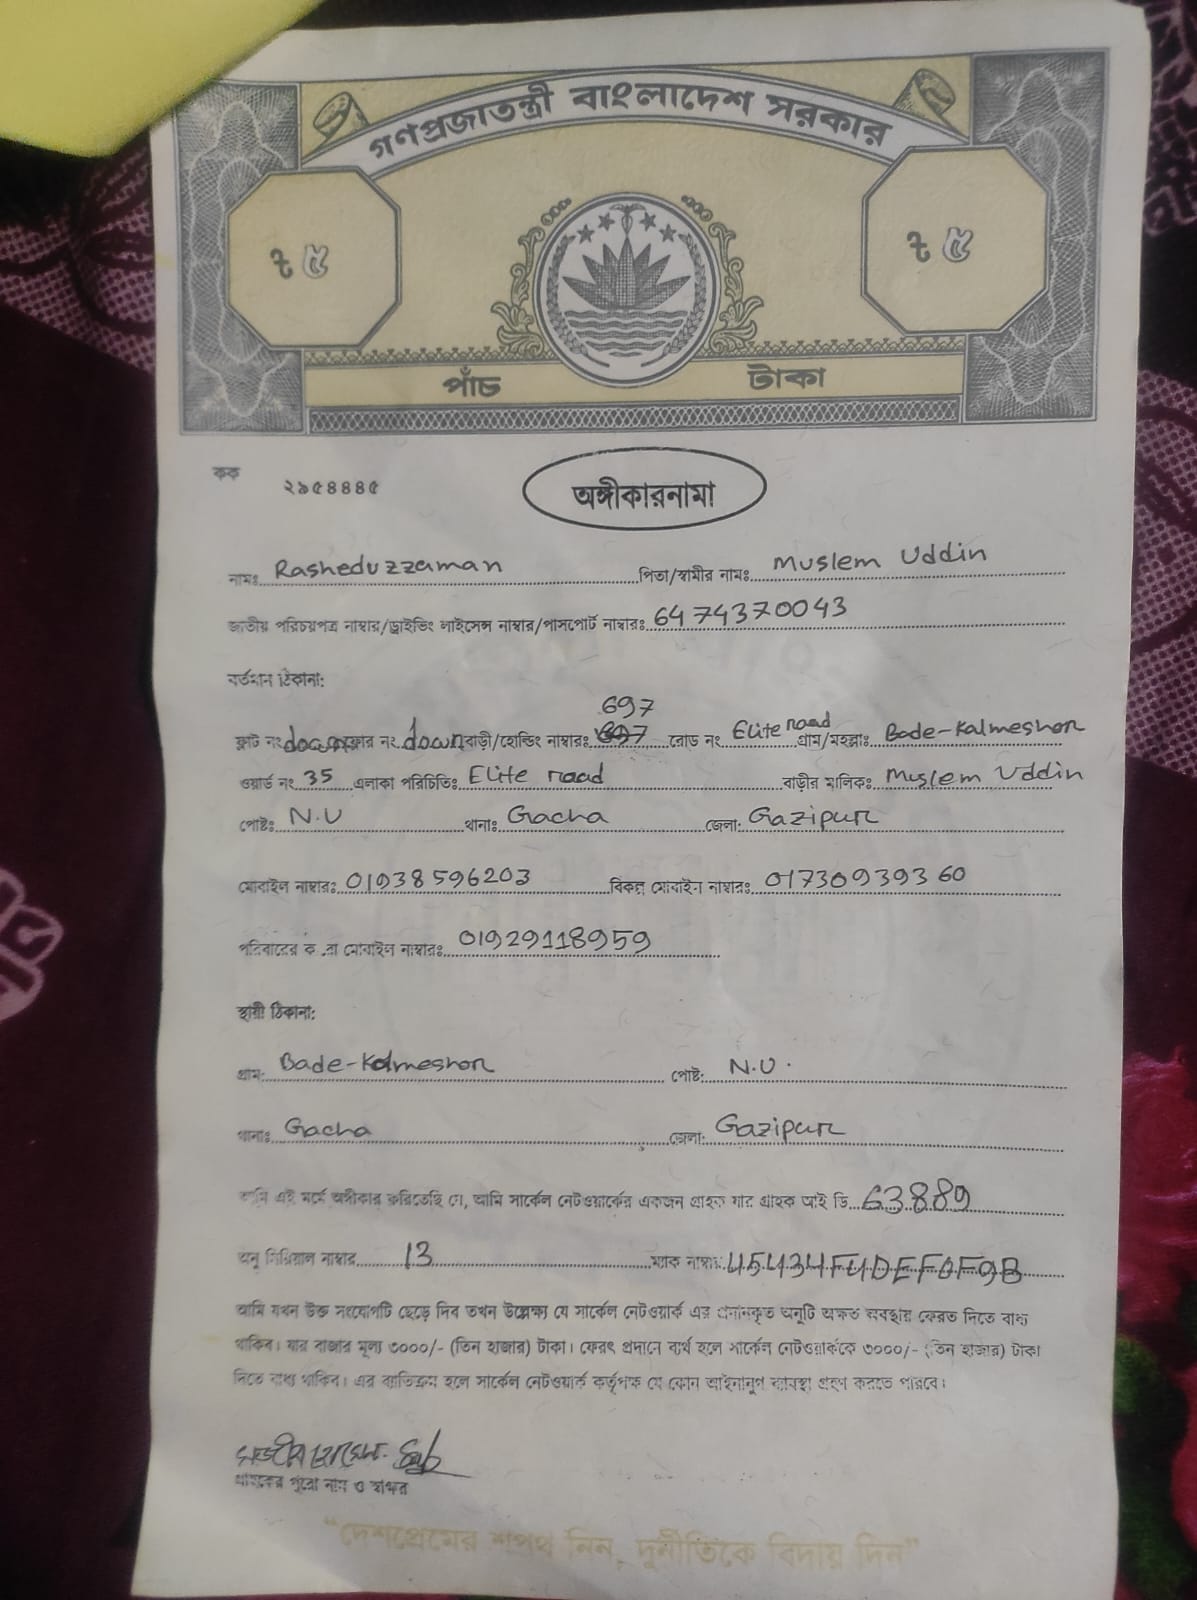 গণপ্রজাতন্ত্রী বাংলাদেশ সরকার
৳ ৫ ৳ ৫
পাঁচ টাকা
কক ২৯৫৪৪৪৫
অঙ্গীকারনামা
নামঃ Rasheduzzaman পিতা/স্বামীর নামঃ Muslem Uddin
জাতীয় পরিচয়পত্র নাম্বার/ড্রাইভিং লাইসেন্স নাম্বার/পাসপোর্ট নাম্বারঃ 6474370043
বর্তমান ঠিকানা:
ফ্লাট নং down ফ্লোর নং down বাড়ী/হোল্ডিং নাম্বারঃ 697 রোড নং Elite road গ্রাম/মহল্লাঃ Bade-Kalmeshor
ওয়ার্ড নং 35 এলাকা পরিচিতিঃ Elite road বাড়ীর মালিকঃ Muslem Uddin
পোষ্টঃ N.U থানাঃ Gacha জেলা: Gazipur
মোবাইল নাম্বারঃ 01938596203 বিকল্প মোবাইল নাম্বারঃ 01730939360
পরিবারের মোবাইল নাম্বারঃ 01929118959
স্থায়ী ঠিকানা:
গ্রাম: Bade-Kalmeshor পোষ্ট: N.U.
থানাঃ Gacha জেলা: Gazipur
আমি এই মর্মে অঙ্গীকার করিতেছি যে, আমি সার্কেল নেটওয়ার্কের একজন গ্রাহক যার গ্রাহক আই ডি 63889
অনু সিরিয়াল নাম্বার 13 ম্যাক নাম্বার: 45434F4DEF0F9B
আমি যখন উক্ত সংযোগটি ছেড়ে দিব তখন উল্লেক্ষ্য যে সার্কেল নেটওয়ার্ক এর প্রদানকৃত অনুটি অক্ষত অবস্থায় ফেরত দিতে বাধ্য
থাকিব। যার বাজার মূল্য ৩০০০/- (তিন হাজার) টাকা। ফেরৎ প্রদানে ব্যর্থ হলে সার্কেল নেটওয়ার্ককে ৩০০০/- (তিন হাজার) টাকা
দিতে বাধ্য থাকিব। এর ব্যতিক্রম হলে সার্কেল নেটওয়ার্ক কর্তৃপক্ষ যে কোন আইনানুগ ব্যবস্থা গ্রহণ করতে পারবে।
গ্রাহকের পুরো নাম ও স্বাক্ষর
“দেশপ্রেমের শপথ নিন, দুর্নীতিকে বিদায় দিন”